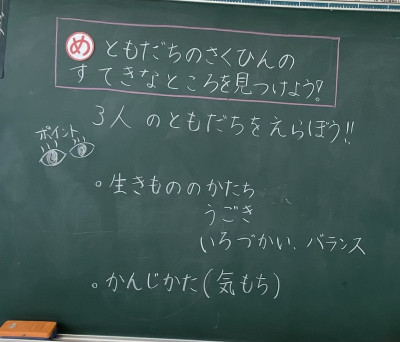 め ともだちのさくひんの
すてきなところを見つけよう!
3人のともだちをえらぼう!!
ポイント
。生きもののかたち
うごき
いろづかい、バランス
。かんじかた(気もち)